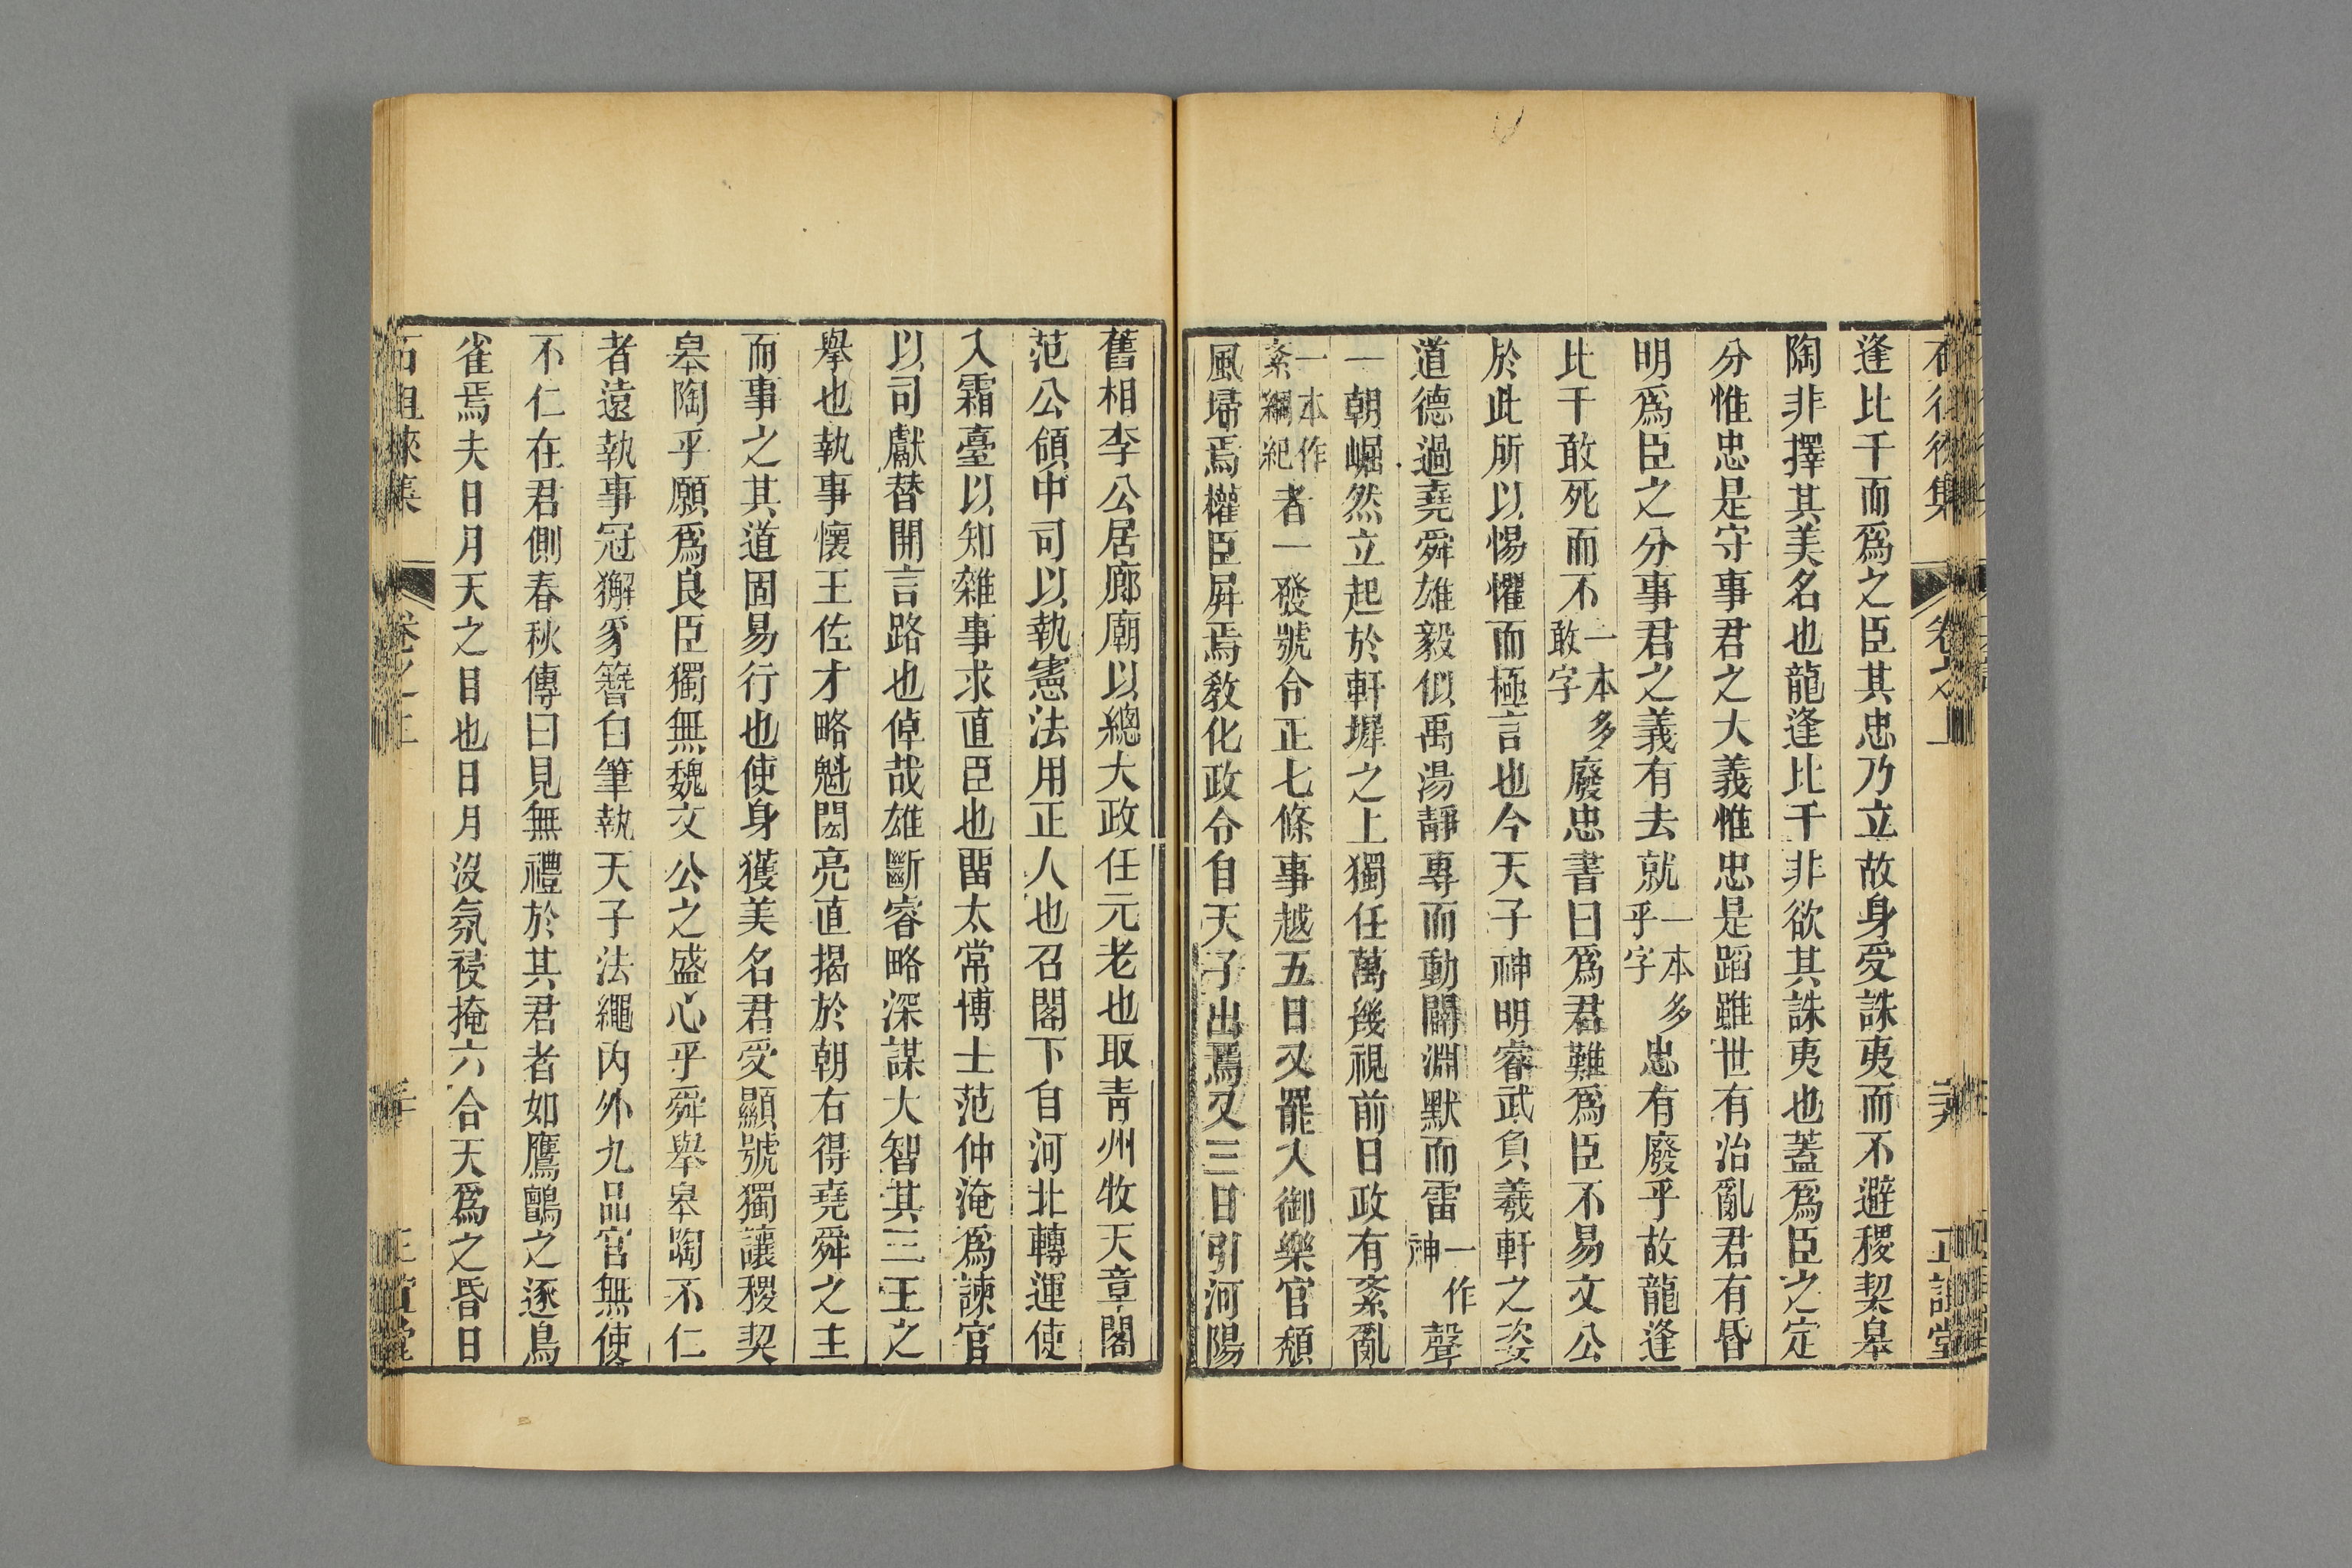 逢比干而爲之臣其忠乃立故身受誅夷而不避稷契皋
陶非擇其美名也龍逢比干非欲其誅夷也蓋爲臣之定
分惟忠是守事君之大義惟忠是蹈雖世有治亂君有昏
明爲臣之分事君之義有去就一本多乎字忠有廢乎故龍逢
比干敢死而不一本多敢字廢忠書曰爲君難爲臣不易文公
於此所以惕懼而極言也今天子神明睿武負羲軒之姿
道德過堯舜雄毅似禹湯靜專而動闢淵默而雷一作神聲
一朝崛然立起於軒墀之上獨任萬幾視前日政有紊亂
一本作紊綱紀者一發號令正七條事越五日又罷入御樂官頹
風埽焉權臣屏焉敎化政令自天子出焉又三日引河陽
舊相李公居廊廟以總大政任元老也取靑州牧天章閣
范公領中司以執憲法用正人也召閣下自河北轉運使
入霜臺以知雜事求直臣也畱太常博士范仲淹爲諫官
以司獻替開言路也倬哉雄斷睿略深謀大智其三王之
舉也執事懷王佐才略魁閎亮直揭於朝右得堯舜之主
而事之其道固易行也使身獲美名君受顯號獨讓稷契
皋陶乎願爲良臣獨無魏文公之盛心乎舜舉皋陶不仁
者遠執事冠獬豸簪白筆執天子法繩內外九品官無使
不仁在君側春秋傳曰見無禮於其君者如鷹鸇之逐鳥
雀焉夫日月天之目也日月沒氛祲掩六合天爲之昏日
石徂徠集 卷之上